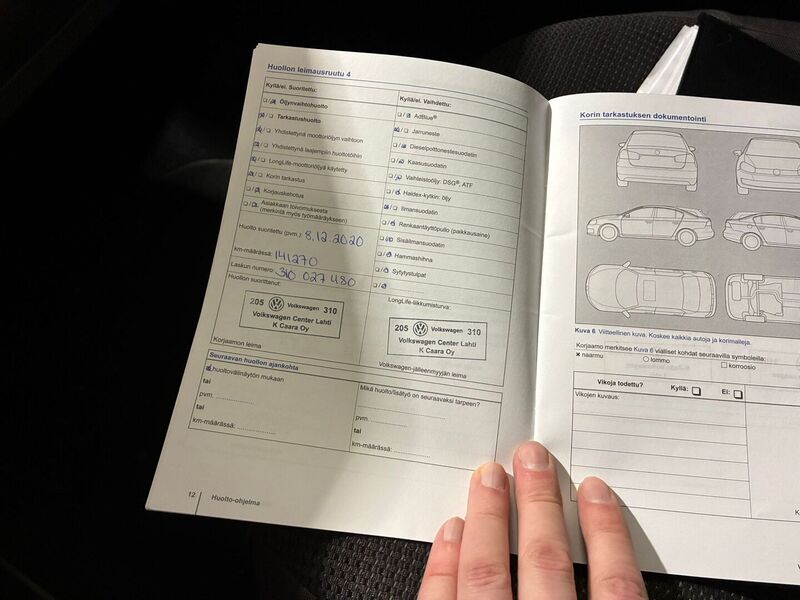 Huollon leimausruutu 4
Kyllä/ei. Suoritettu:
Öljynvaihtohuolto
Tarkastushuolto
Yhdistettynä moottoriöljyn vaihtoon
Yhdistettynä laajempiin huoltotöihin
LongLife-moottoriöljyä käytetty
Korin tarkastus
Korjauskehotus
Asiakkaan toivomuksesta
(merkintä myös työmääräykseen)
Huolto suoritettu (pvm.) 8.12.2020
km-määrässä: 141270
Laskun numero: 310 027 480
Huollon suorittanut:
205 Volkswagen 310
Volkswagen Center Lahti
K Caara Oy
Korjaamon leima
Kyllä/ei. Vaihdettu:
AdBlue®
Jarruneste
Dieselpolttonestesuodatin
Kaasusuodatin
Vaihteistoöljy: DSG®, ATF
Haldex-kytkin: öljy
Ilmansuodatin
Renkaantäyttöpullo (paikkausaine)
Sisäilmansuodatin
Hammashihna
Sytytystulpat
LongLife-liikkumisturva:
205 Volkswagen 310
Volkswagen Center Lahti
K Caara Oy
Volkswagen-jälleenmyyjän leima
Seuraavan huollon ajankohta
huoltovälinäytön mukaan
tai
pvm. ....................
tai
km-määrässä: .............
Mikä huolto/lisätyö on seuraavaksi tarpeen?
pvm. ....................
tai
km-määrässä: .............
12 Huolto-ohjelma
Korin tarkastuksen dokumentointi
Kuva 6 Viitteellinen kuva. Koskee kaikkia autoja ja korimalleja.
Korjaamo merkitsee Kuva 6 vialliset kohdat seuraavilla symboleilla:
× naarmu ○ lommo □ korroosio
Vikoja todettu? Kyllä: Ei:
Vikojen kuvaus: